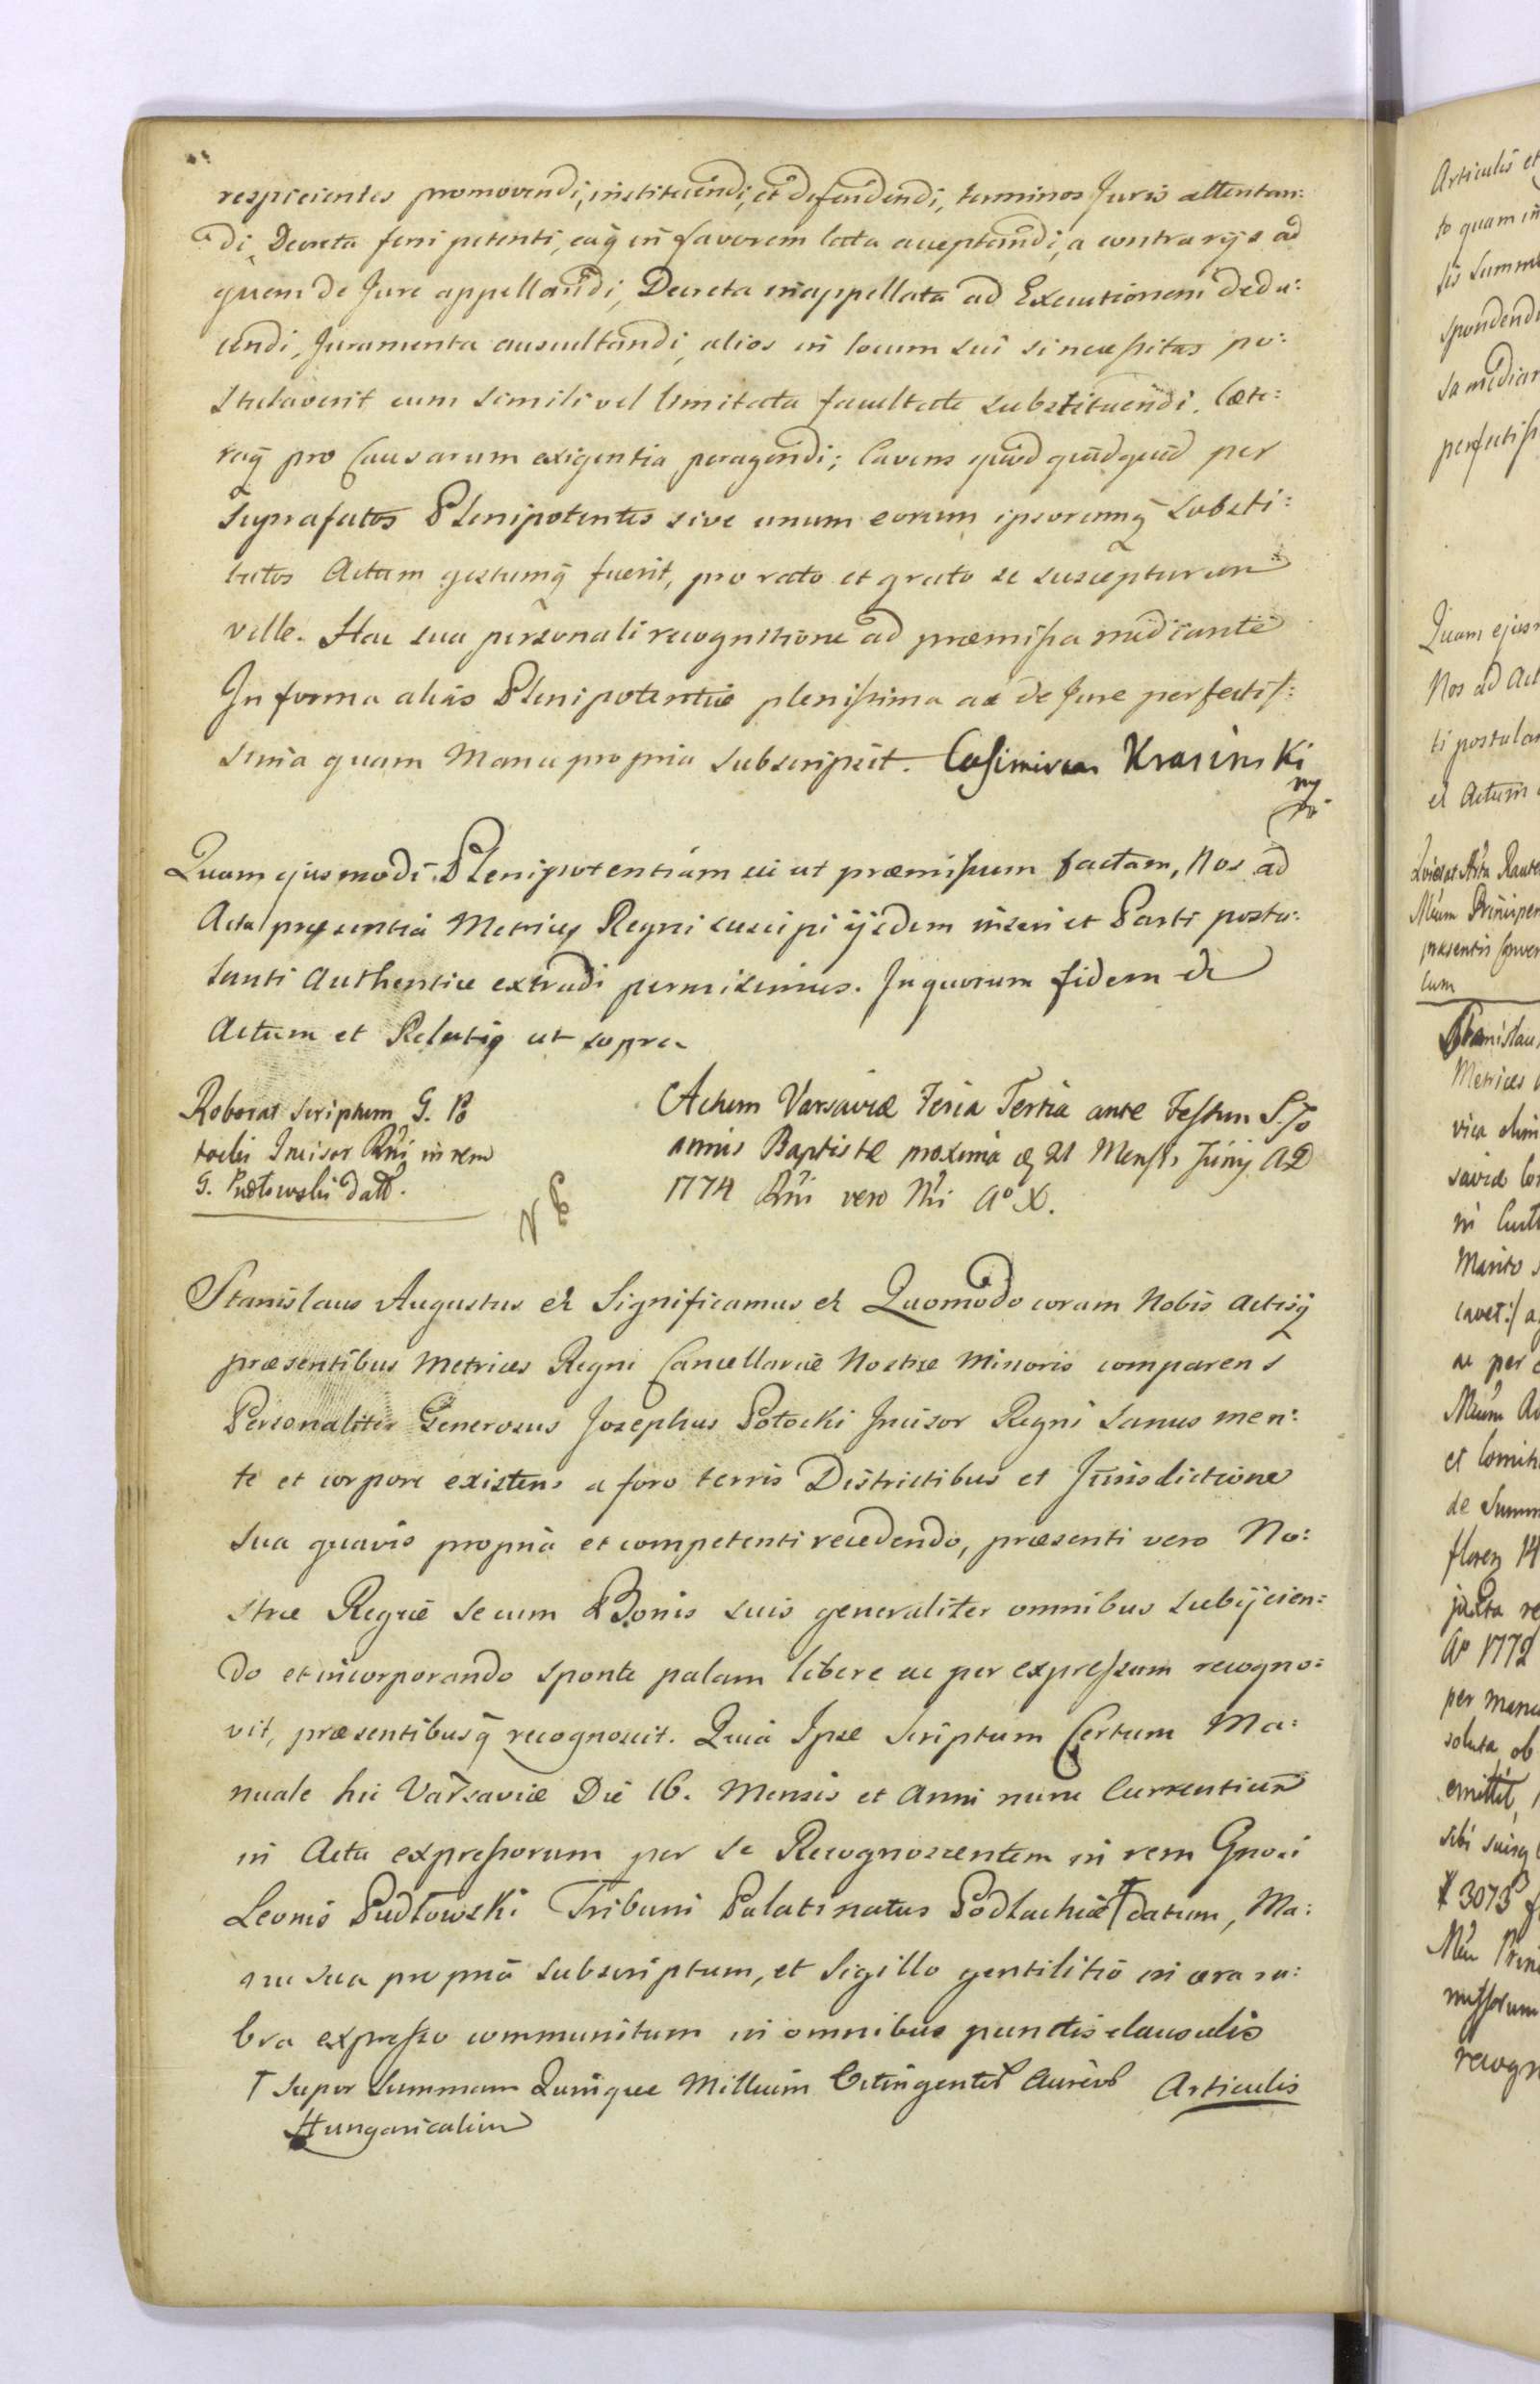 respicientes promovendi, instituendi, et defendendi, terminos Juris attentan:
di, Decreta feri petenti, eaq̃ in favorem lata acceptandi, a contrarijs ad
quem de Jure appellandi, Decreta inappellata ad Executionem dedu:
cendi, Juramenta auscultandi, alios in locum sui si necessitas po:
stulaverit cum simili vel limitata facultate substituendi. Cæte:
raq̃ pro Causarum exigentia peragendi; Cavens quod quidquid per
Suprafatos Plenipotentes sive unum eorum ipsorumq̃ substi:
tutos Actum gestumq̃ fuerit, pro rato et grato se suscepturum
velle. Hac sua personali recognitione ad præmissa mediante
In forma alias Plenipotentiæ plenissima ac de Jure perfectis:
sima quam Manu propria subscripsit. Casimirus Krasinski
mp
Quam ejusmodi Plenipotentiam uti ut præmissum factam, Nos ad
Acta præsentia Metricæ Regni suscipi ijsdem inseri et Parti postu:
lanti Authentice extradi permisimus. In quorum fidem et
Actum et Relatiq ut supra
Roborat scriptum G. Po
tocki Incisor Rñi in rem
G. Pudłowski datt.
Actum Varsaviæ Feria Tertia ante Festum S. Jo
annis Baptistæ proxima æ 21 Mensis Junij AD
1774 Rñi vero Nri Aº X.
NB
Stanislaus Augustus et Significamus et Quomodo coram Nobis Actisq̃
præsentibus Metrices Regni Cancellariæ Nostræ Minoris comparens
Personaliter Generosus Josephus Potocki Incisor Regni sanus men:
te et corpore existens a foro terris Districtibus et Jurisdictione
sua quavis propria et competenti recedendo, præsenti vero No:
stræ Regiæ se cum Bonis suis generaliter omnibus subijcien:
do et incorporando sponte palam libere ac per expressum recogno:
vit, præsentibusq̃ recognoscit. Quia Ipse Scriptum Certum Ma:
nuale hic Varsaviæ Die 16. Mensis et Anni nunc Currentium
in Actu expressorum per se Recognoscentem in rem Gnosi
Leonis Pudłowski Tribuni Palatinatus Podlachiæ † datum, Ma:
nu sua propria subscriptum, et Sigillo gentilitio in cera ru:
bra expresso communitum in omnibus punctis clausulis
† super Summam Quinque Millium Octingentos Aureos Articulis
Hungaricalium
Articulis et
to quam in
lis Summ
spondendi
sa median
perfectiss
Quam ejusm
Nos ad Act
ti postulan
et Actum
Quietat
Principem
præsentis
cum
Stanislau
Metrices
vica
savia
in
Marito
cavet:/
ac per
et
de Summ
floren 14
juxta re
Aº 1772
per manu
soluta, ob
emittit,
sibi suisq
3073
recogn